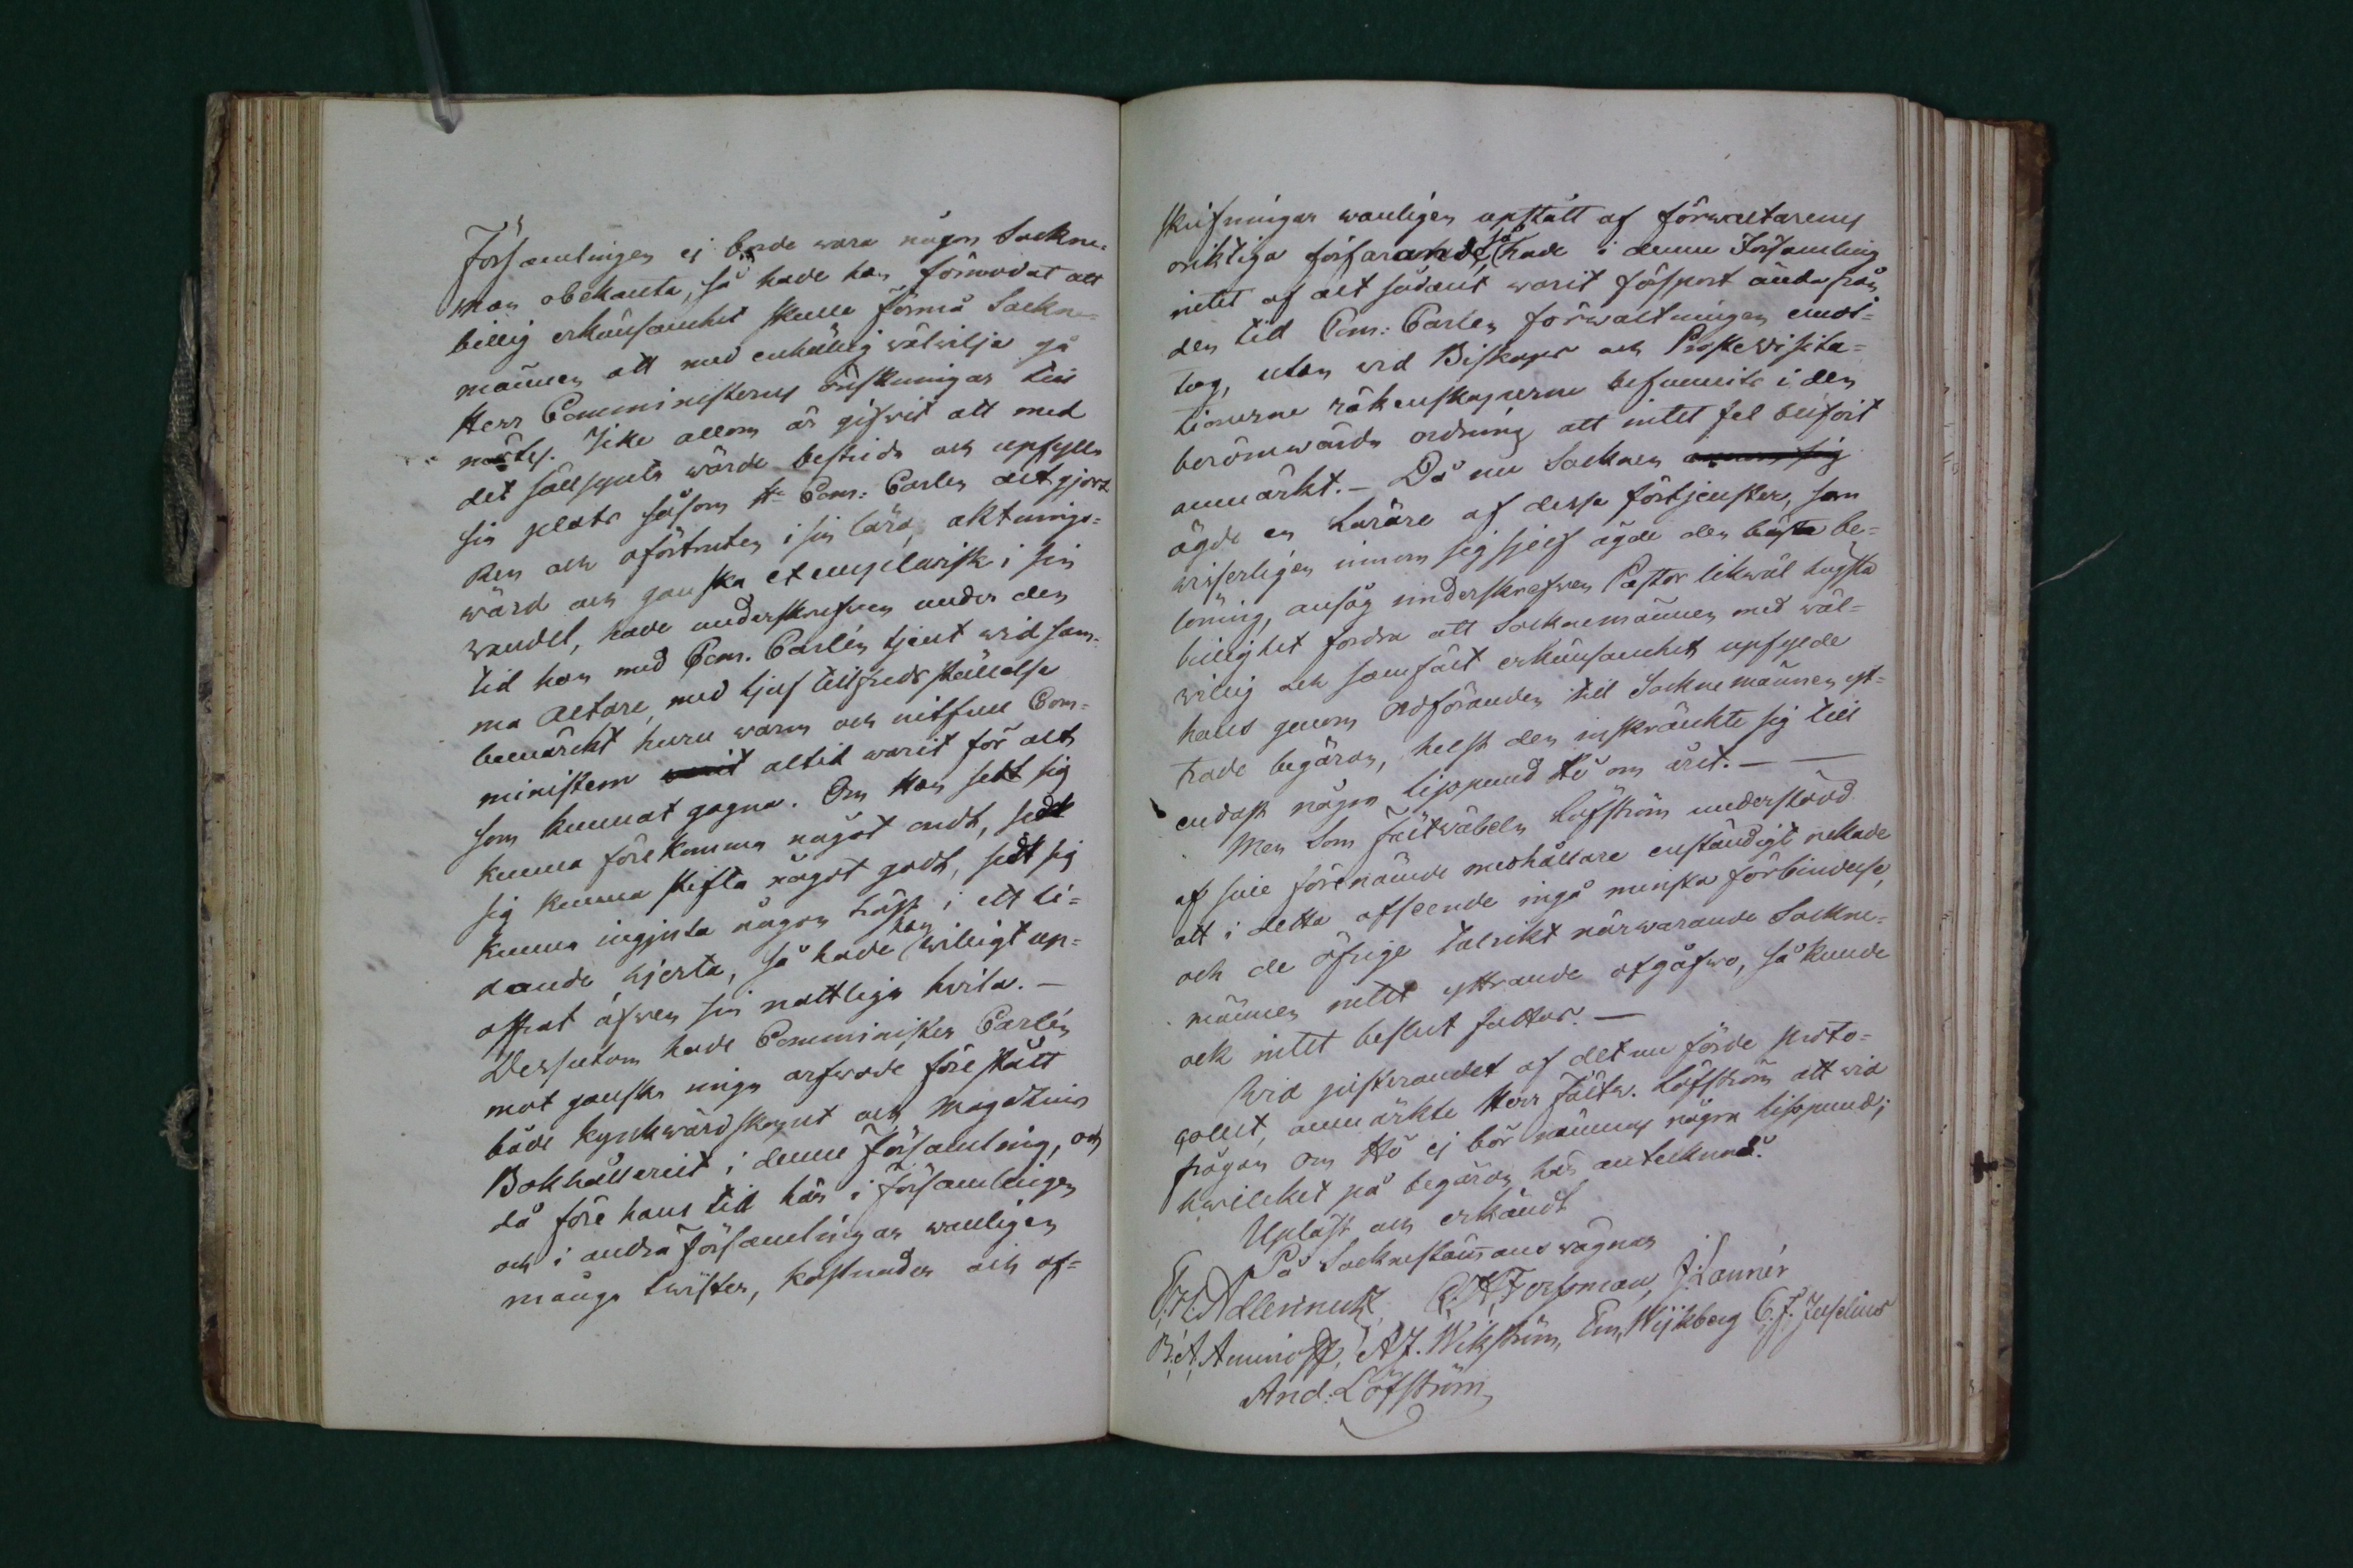 Församlingen ej borde wara någon Sockne-
man obekanta, så hade han förmodat att
billig erkänsamhet skulle förmå Sockne-
männen att med enhällig välvilja gå
Herr Comministerns önskningar till
mötes. Icke allom är gifwit att med
det sällsynta wärde bestrida och upfylla
sin plats såsom Hr Com: Carlen det gjort
Ren och oförtruten i sin lära, aktnings-
wärd och ganska exemplarisk i sin
wandel, hade underskrefwen under den
tid han med Com. Carlén tjent wid sam-
ma Altare, med ljuf tillfredsställelse
bemärkt huru warm och nitfull Com-
ministern altid warit för alt
som kunnat gagna. Om Han sedt sig
kunna förekomma något ondt, sedt
sig kunna stifta något godt, sedt sig
kunna ingjuta någon tröst i ett li-
dande hjerta, så hade han willigt up-
offrat äfwen sin nattliga hvila. —
Dessutom hade Comminister Carlén
mot ganska ringa arfwode förestått
både Kyrkwärdskapet och Magazins
Bokhålleriet i denna Församling, och
då före hans tid här i församlingen
och i andra församlingar wanligen
många twister, kostnader och af-
skrifningar wanligen upstått af förwaltarens
oriktiga förfarande, så hade i denna Församling
intet af alt sådant warit försport ända från
den tid Com: Carlen förwaltningen emot-
tog, utan wid Biskops och Prostevisita-
tionerne räkenskaperne befunnits i den
berömwärda ordning att intet fel blifvit
anmärkt. — Då nu Socknen
ägde en Lärare af dessa förtjenster, som
wisserligen inom sig sjelf ägde den bästa be-
löning, ansåg underskrefwen Pastor likwäl högsta
billighet fordra att Socknemännen med wäl-
willig och samfält erkänsamhet upfylde
hans genom Ordföranden till Socknemännen yt-
trade begäran, helst den inskränkte sig till
endast någon lisspund Hö om året. — —
Men som Fältwäbeln Löfström understödd
af sine förenämde medhållare enständigt nekade
att i detta afseende ingå minsta förbindelse,
och de öfrige talrikt närwarande Sockne-
männen intet yttrande afgåfwo, så kunde
ock intet beslut fattas. —
Wid justerandet af det nu förde proto-
collet, anmärkte Herr Fältw. Löfström att wid
frågan om Hö ej bör nämnas någre lisspund;
hwilcket på begäran här antecknades.
Upläst och erkändt
På Socknestämans vägnar
E. H. Adlercreutz, C. H. Forssman, J. Lannér
B. A. Aminoff, A J. Wikström, Em, Wijkberg C. J. Juselius
And: Löfström